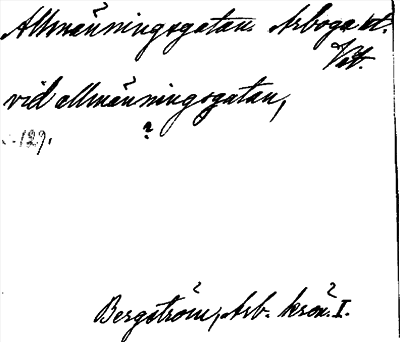 Allmänningsgatan. Arboga st.
Vstt.
vid allmänningsgatan,
?
s. 129.
Bergström, Arb. krön. I.